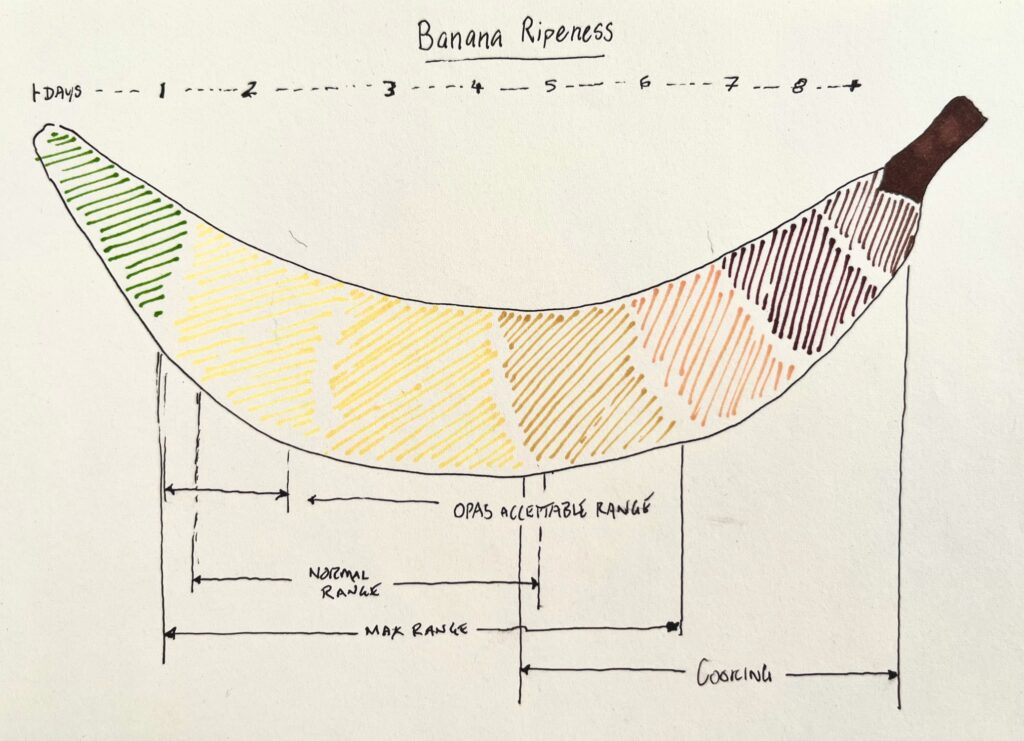 Banana Ripeness
DAYS --- 1 ----- 2 ------- 3 ---- 4 --- 5 --- 6 ---- 7 -- 8 --
OPAS ACCEPTABLE RANGE
NORMAL
RANGE
MAX RANGE
COOKING